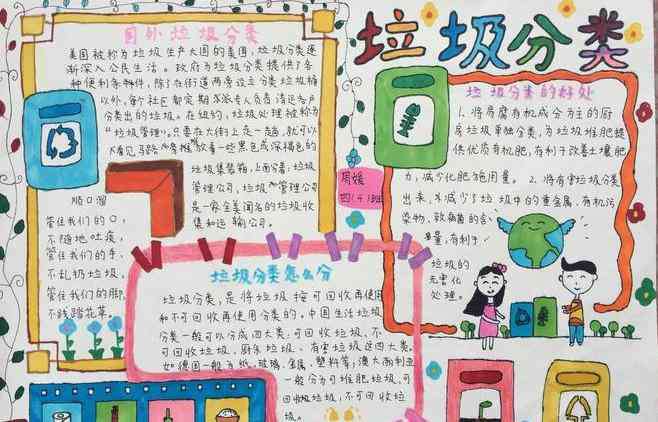 垃圾分类
国外垃圾分类
美国被称为垃圾生产大国的美国,垃圾分类逐
渐深入公民生活。政府为垃圾分类提供了各
种便利条件,除了在街道两旁设立分类垃圾桶
以外,每个社区都定期派专人负责清运各户
分类出的垃圾。在纽约,垃圾处理被称为
“垃圾管理”。只要在大街上走一走,就可以
看见马路旁堆放着一些黑色或深褐色的
垃圾集装箱,上面分着:垃圾
管理公司,垃圾管理公司
是一家全美闻名的垃圾收
集和运输公司。
顺口溜
管住我们的口,
不随地吐痰,
管住我们的手,
不乱扔垃圾,
管住我们的脚,
不践踏花草。
周媛
四(4)班
垃圾分类的好处
1、将易腐有机成分为主的厨
房垃圾单独分类,为垃圾堆肥提
供优质有机肥,有利于改善土壤肥
力,减少化肥施用量。2、将有害垃圾分类
出来,减少了垃圾中的重金属、有机污
染物、致病菌的含
量,有利于
垃圾的
无害化
处理。
垃圾分类怎么分
垃圾分类,是将垃圾按可回收再使用
和不可回收再使用分类的。中国生活垃圾
分类一般可以分成四大类:可回收垃圾、不
可回收垃圾、厨余垃圾、有害垃圾这四大类。
如德国一般为纸、玻璃、金属、塑料等;澳大利亚
一般分为可堆肥垃圾,可
回收垃圾,不可回收垃
圾。